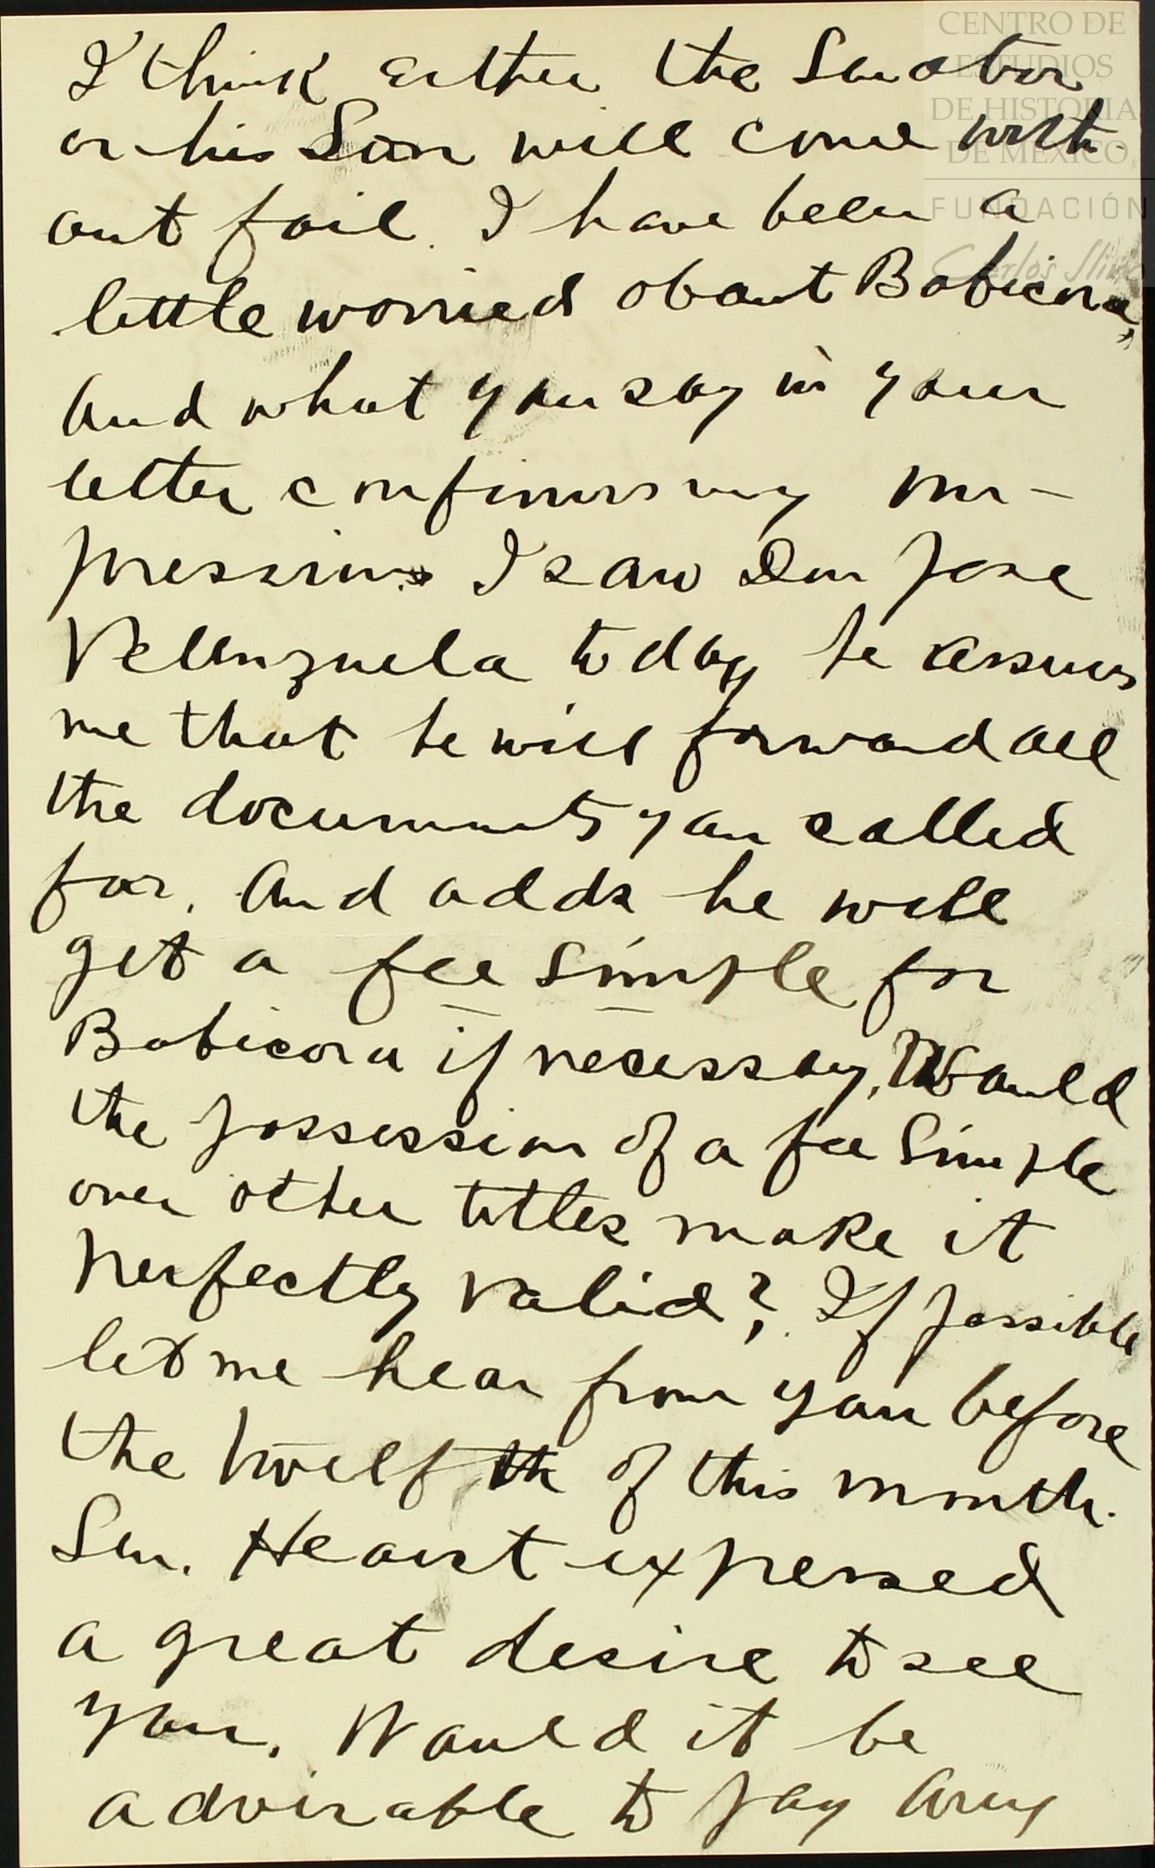 CENTRO DE
ESTUDIOS
DE HISTORIA
DE MÉXICO
FUNDACIÓN
Carlos Slim
I think either the Senator
or his Son will come with-
out fail. I have been a
little worried about Babicora,
And what you say in your
letter confirms my im-
pressions I saw Don Jose
Velenzuela today he assures
me that he will forward all
the documents you called
for. And adds he will
get a fee simple for
Babicora if necessay, Would
the possession of a fee Simple
over other titles make it
perfectly valid? If possible
let me hear from you before
the twelfth of this month.
Sen. Hearst expressed
a great desire to see
you. Would it be
advisable to pay any